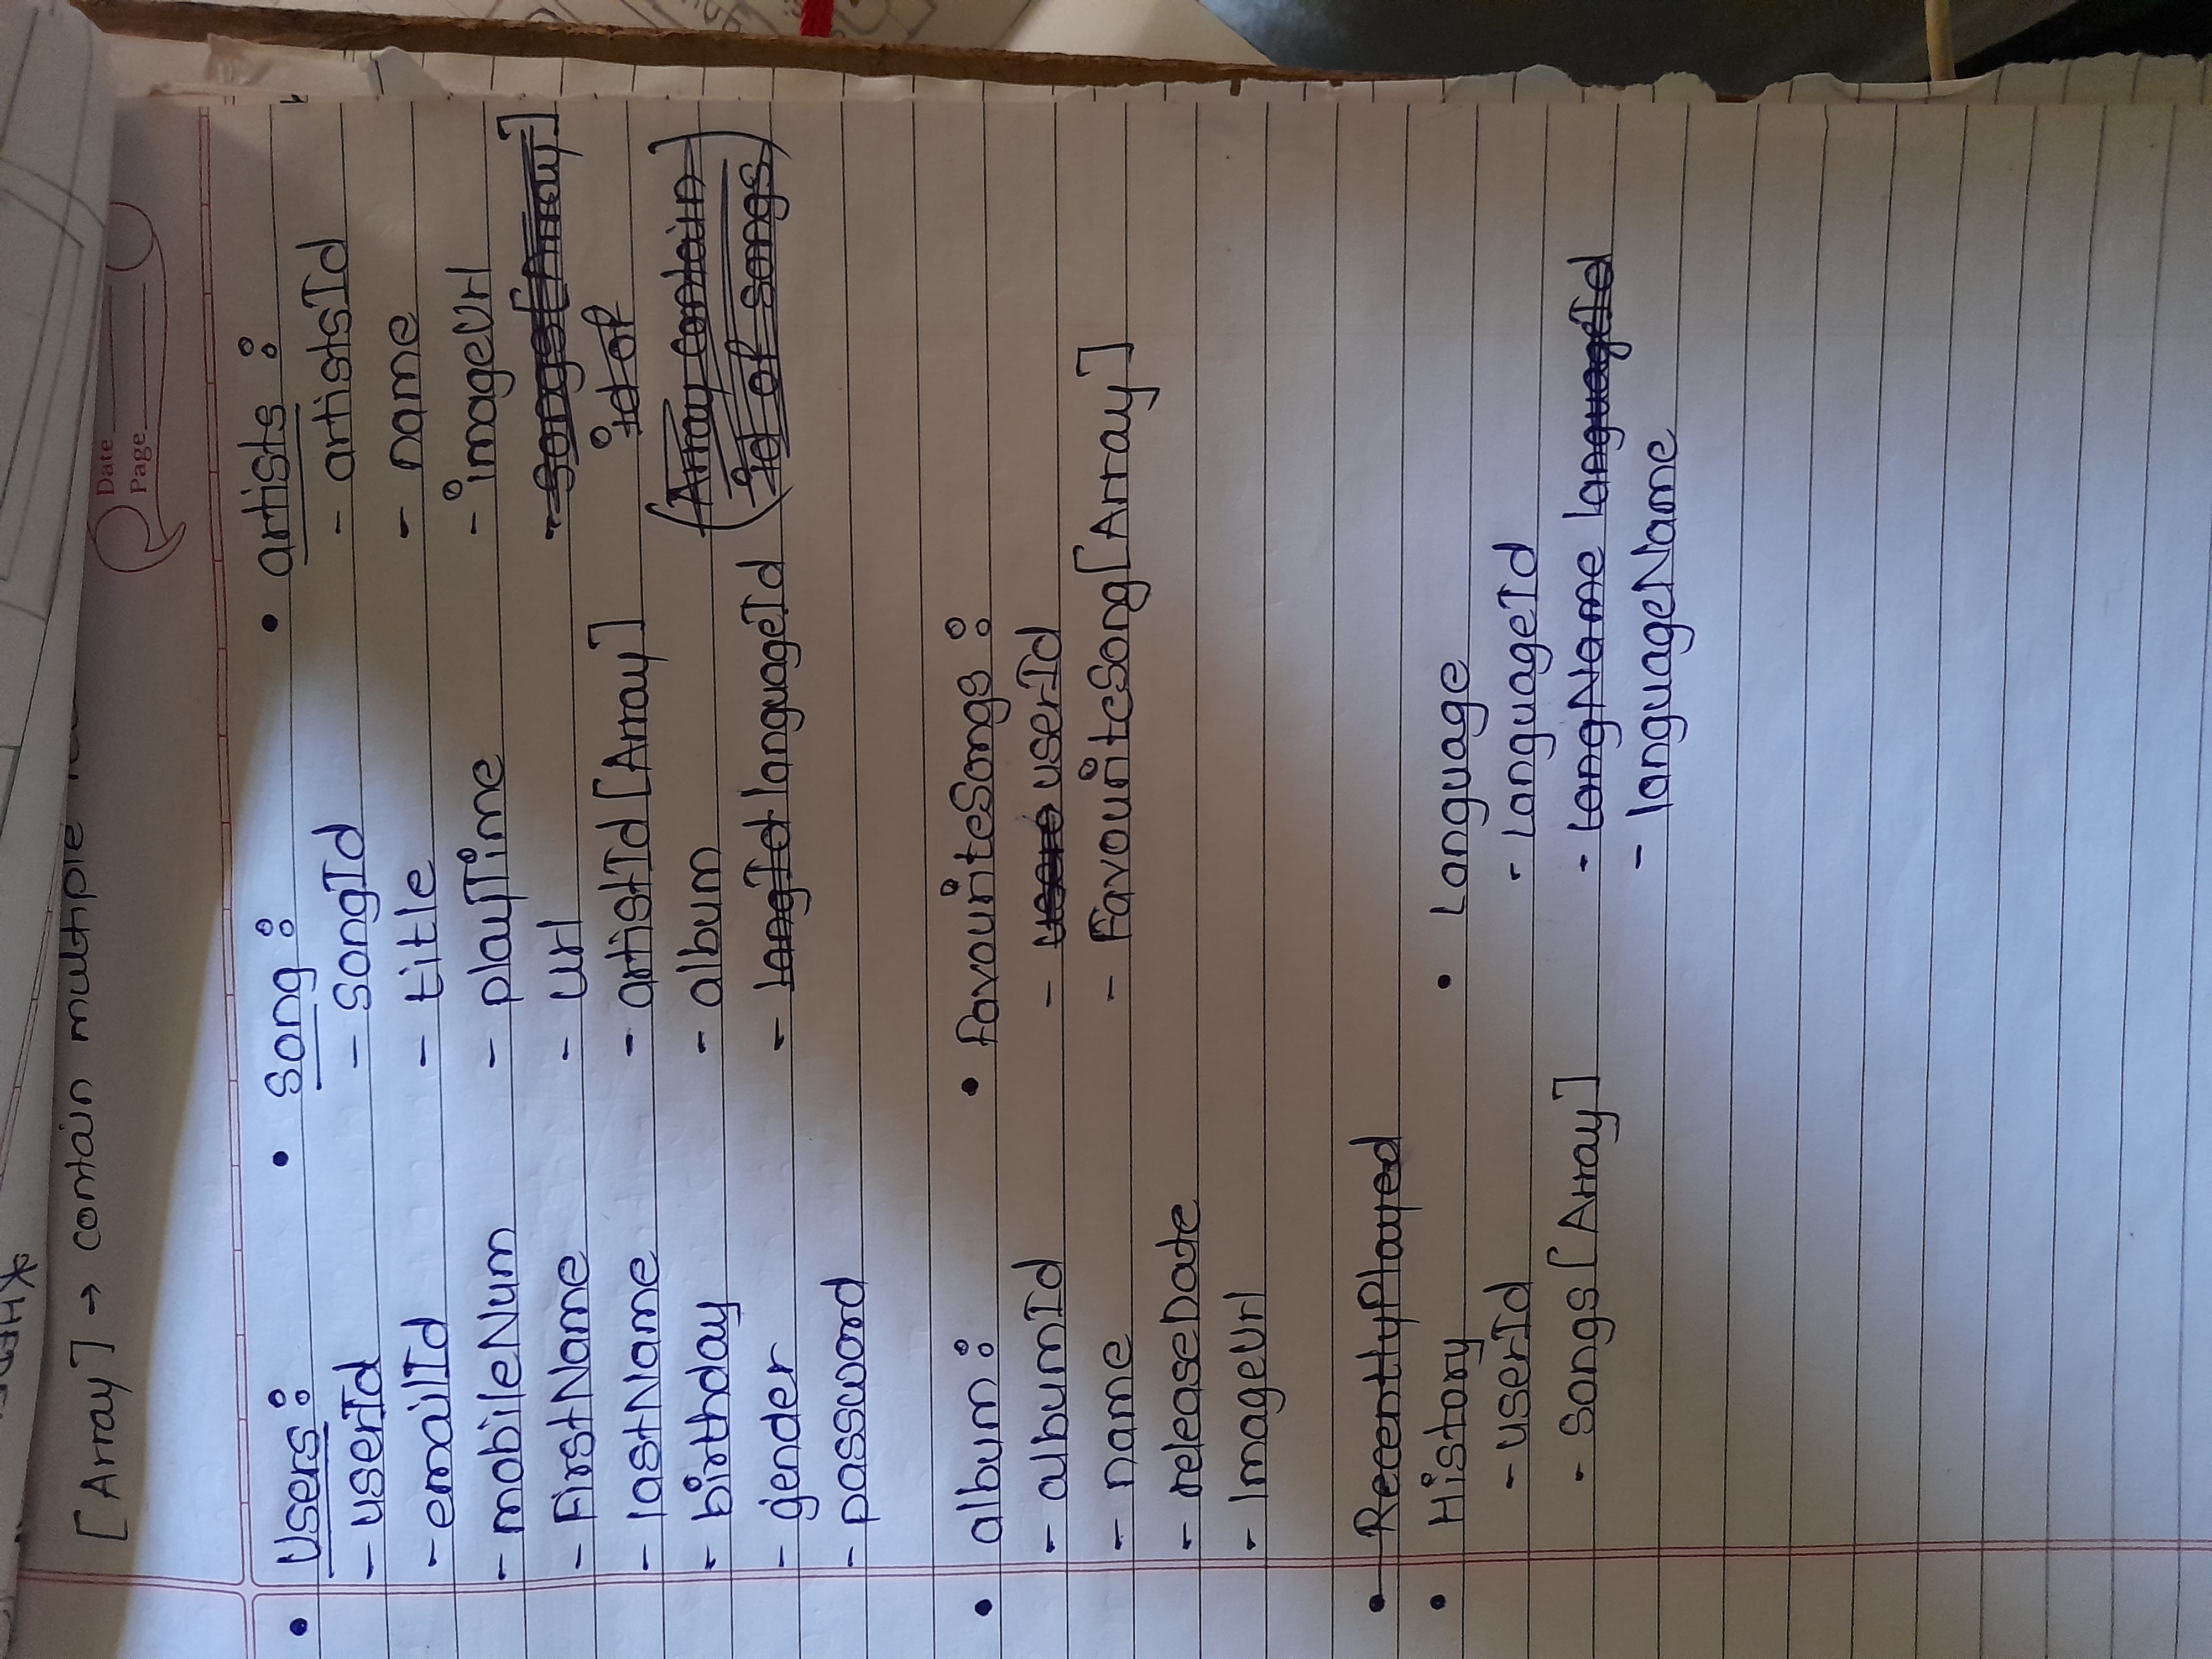 [Array] → contain multiple
Date
Page
• Users :
- userId
- emailId
- mobileNum
- FirstName
- lastName
- birthday
- gender
- password
• Song :
- SongId
- title
- playTime
- url
- artistId [Array]
- album
- langId languageId
• artists :
- artistsId
- name
- imageUrl
- songs[Array]
id of
(Array contain
id of songs)
• album :
- albumId
- name
- releaseDate
- ImageUrl
• FavouriteSongs :
- users userId
- FavouriteSong[Array]
• RecentlyPlayed
• History
- userId
- Songs [Array]
• Language
- LanguageId
- LangName languageId
- languageName